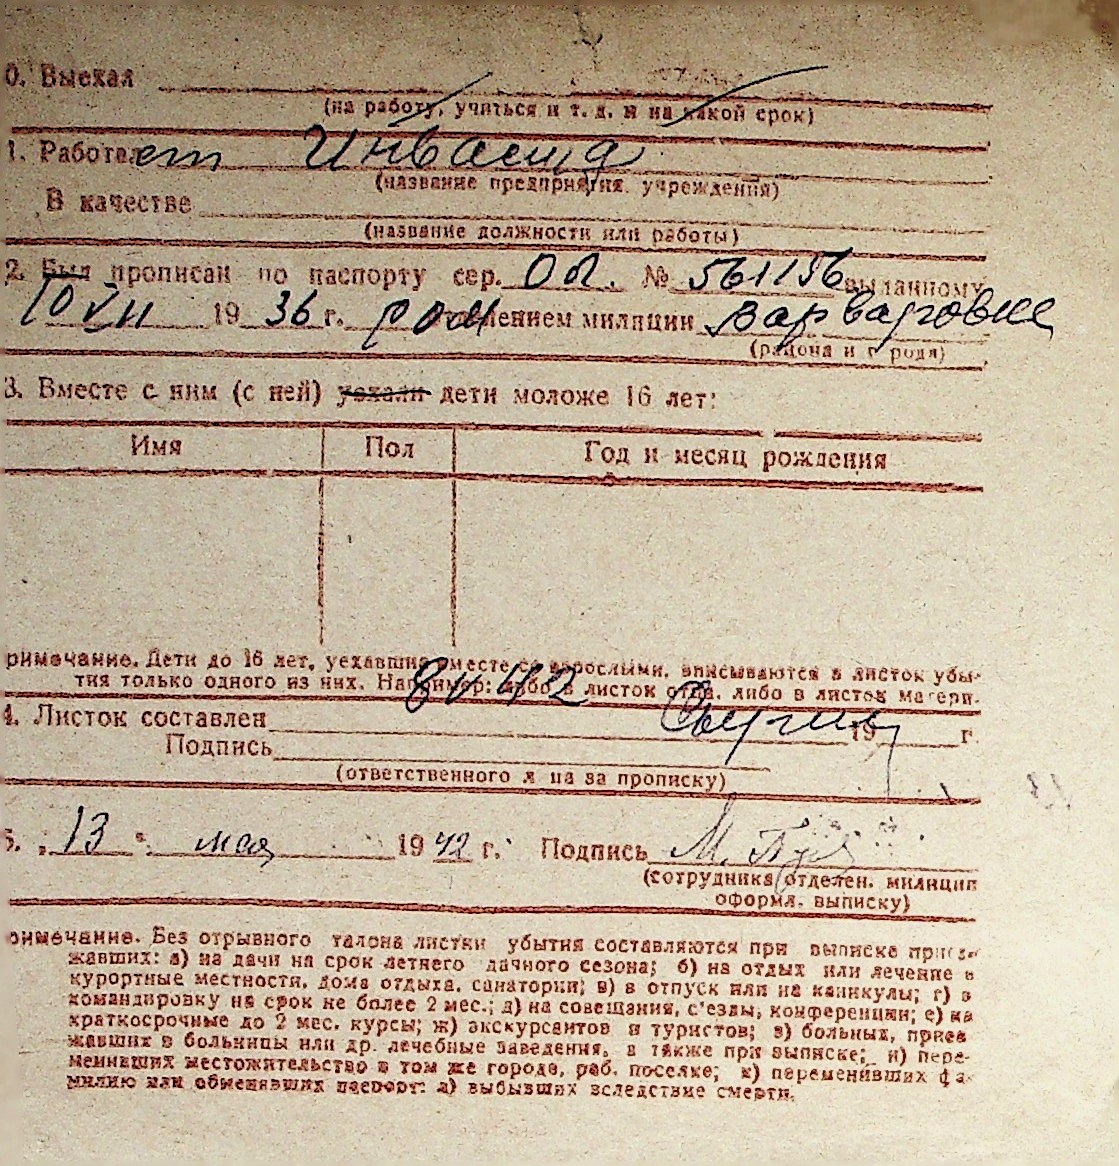 0. Выехал
(на работу, учиться и т. д. и на какой срок)
1. Работает Инвалид
(название предприятия, учреждения)
В качестве
(название должности или работы)
2. Был прописан по паспорту сер. № 561156 выданному
10 VII 1936 г. РОМ отделением милиции Варваровке
(района и города)
3. Вместе с ним (с ней) уехали дети моложе 16 лет:
Имя Пол Год и месяц рождения
римечание. Дети до 16 лет, уехавшие вместе со взрослыми, вписываются в листок убы-
тия только одного из них. Например: либо в листок отца, либо в листок матери.
8 42
4. Листок составлен 19 г.
Подпись
(ответственного лица за прописку)
5. „13“ мая 1942 г. Подпись М.
(сотрудника отделен. милиции
оформ. выписку)
римечание. Без отрывного талона листки убытия составляются при выписке приез-
жавших: а) на дачи на срок летнего дачного сезона; б) на отдых или лечение в
курортные местности, дома отдыха, санатории; в) в отпуск или на каникулы; г) в
командировку на срок не более 2 мес.; д) на совещания, с'езды, конференции; е) на
краткосрочные до 2 мес. курсы; ж) экскурсантов и туристов; з) больных, приез
жавших в больницы или др. лечебные заведения, а также при выписке; и) пере-
менивших местожительство в том же городе, раб. поселке; к) переменивших фа-
милию или обменявших паспорт: л) выбывших вследствие смерти.